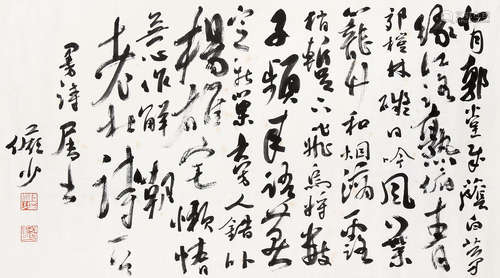 背郭堂成蔭白茅
緣江路熟俯青
郊榿林礙日吟風葉
籠竹和烟滴露
梢暫下飛烏將數
子頻來語燕
定新巢旁人錯比
楊雄宅懶惰
無心作解嘲
老杜詩
詩居士